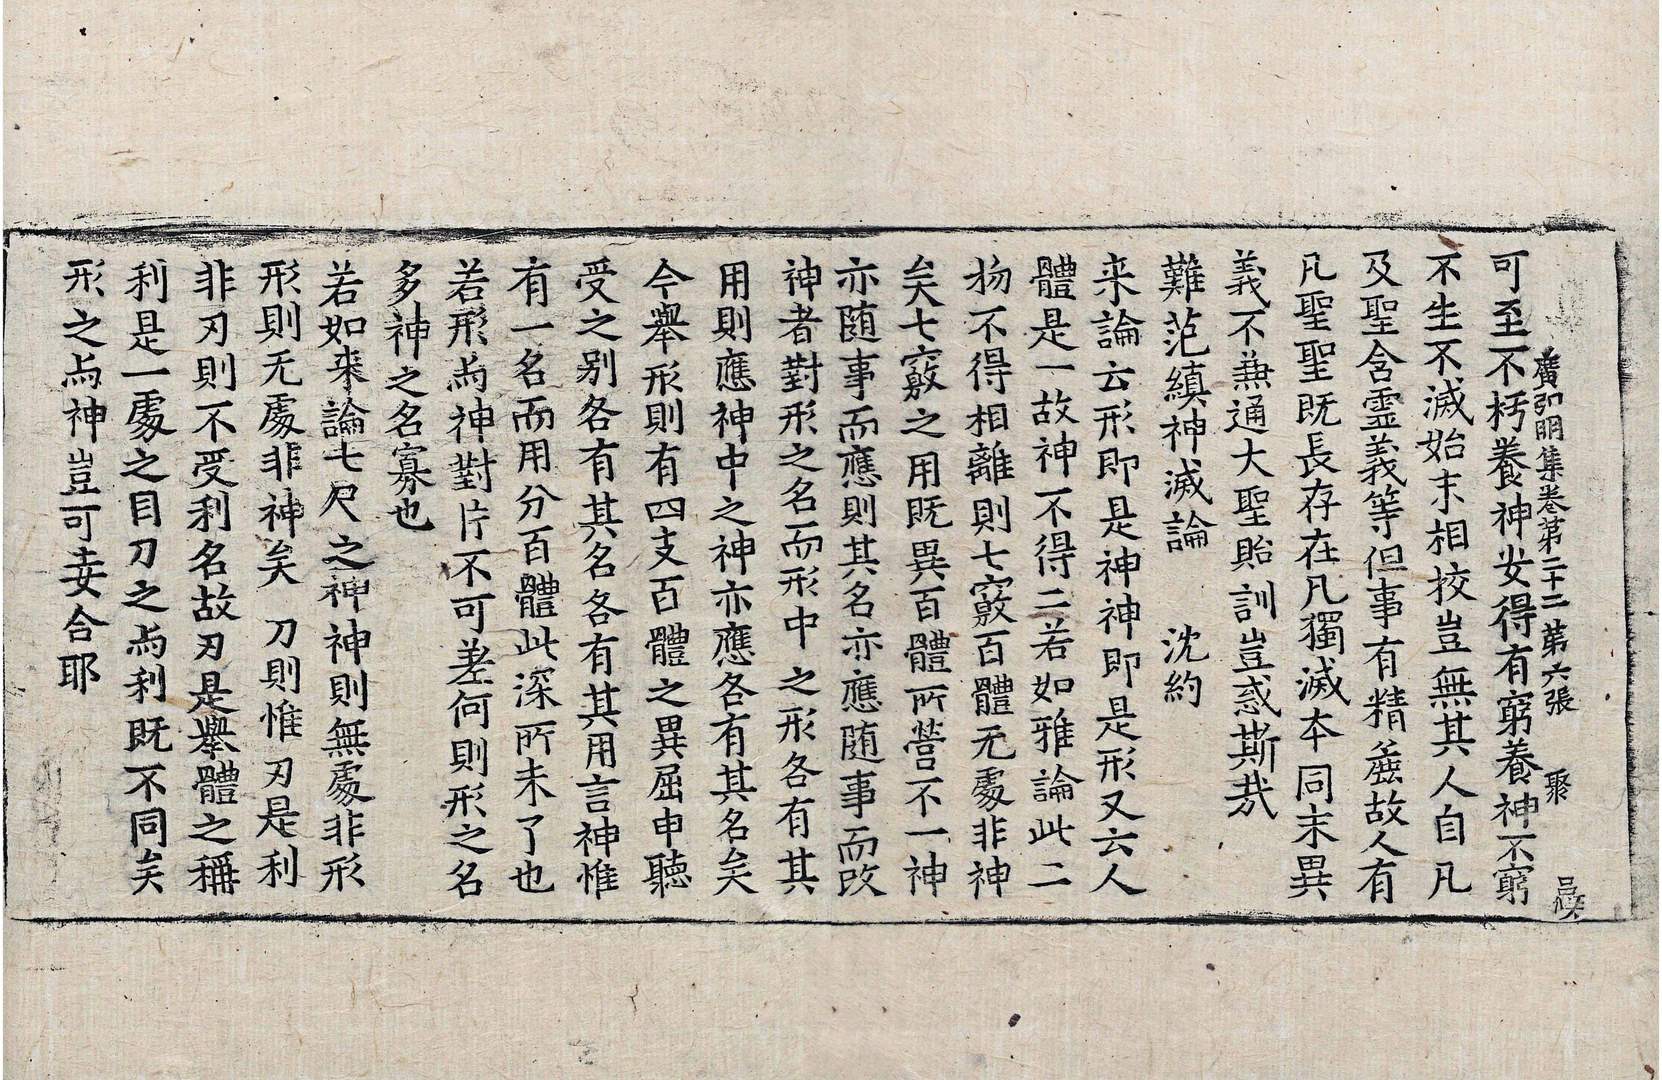 廣弘明集卷第二十二 第六張 聚
可至不朽養神安得有窮養神不窮
不生不滅始末相挍豈無其人自凡
及聖含靈義等但事有精麁故人有
凡聖聖既長存在凡獨滅本同末異
義不兼通大聖貽訓豈惑斯㦲
難范縝神滅論 沈約
来論云形即是神神即是形又云人
體是一故神不得二若如雅論此二
物不得相離則七竅百體无處非神
矣七竅之用既異百體所營不一神
亦随事而應則其名亦應随事而改
神者對形之名而形中之形各有其
用則應神中之神亦應各有其名矣
今舉形則有四支百體之異屈申聽
受之别各有其名各有其用言神惟
有一名而用分百體此深所未了也
若形為神對片不可差何則形之名
多神之名寡也
若如來論七尺之神神則無處非形
形則无處非神矣 刀則惟刃是利
非刃則不受利名故刃是舉體之稱
利是一處之目刀之為利既不同矣
形之為神豈可妄合耶